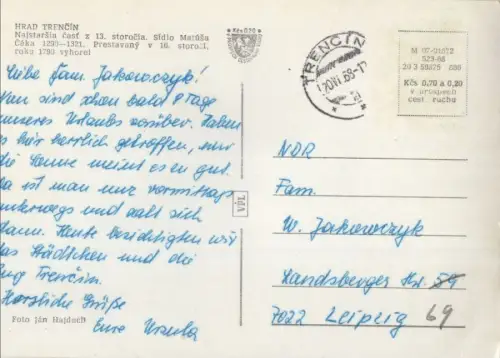 HRAD TRENČÍN
Najstaršia časť z 13. storočia. Sídlo Matúša
Čáka 1299—1321. Prestavaný v 16. storočí,
roku 1790 vyhorel
Kčs 0,20
TRENČÍN
M 07-01072
523-68
Kčs 0,70 a 0,20
v prospech
cest ruchu
Liebe Fam. Jakowczyk!
Nun sind schon bald 8 Tage
unseres Urlaubs vorüber. Haben
es hier herrlich getroffen, nur
die Sonne meint es zu gut.
Da ist man nur vormittags
unterwegs und aalt sich
dann. Heute besichtigten wir
das Städtchen und die
Burg Trenčín.
Herzliche Grüße
Eure Ursula
Foto Ján Hajdoch
VPL
NDR
Fam.
W. Jakowczyk
Landsberger Str. 59
7022 Leipzig 69